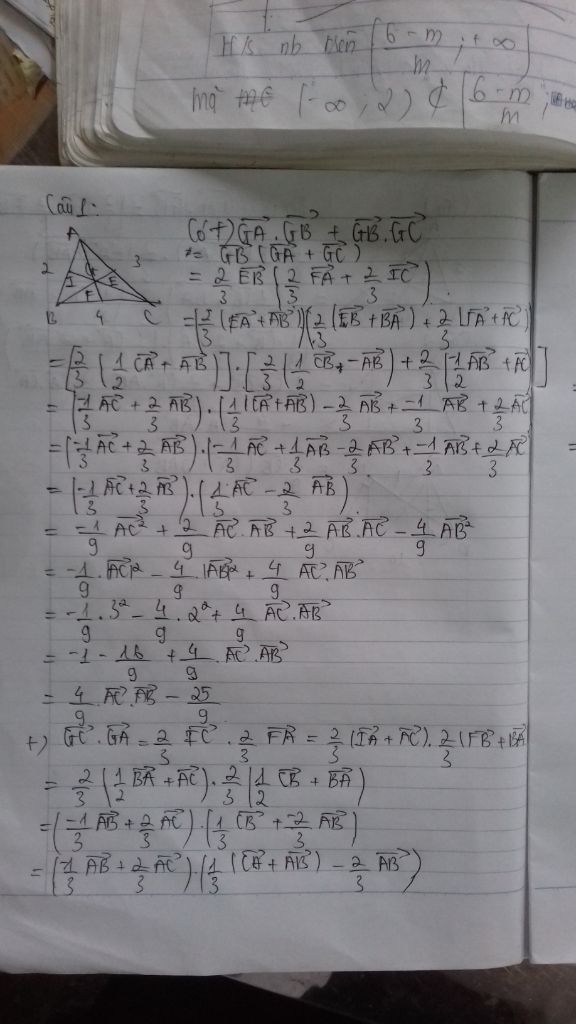 H/s nb trên (6-m/m ; +∞)
mà m∈ (-∞ ; 2) ⊄ (6-m/m ;
Câu 1:
A
2
3
G
I
E
F
B
4
C
Có +) GA→ . GB→ + GB→ . GC→
= GB→ (GA→ + GC→)
= 2/3 EB→ (2/3 FA→ + 2/3 IC→)
= (2/3 (EA→ + AB→)) (2/3 (FB→ + BA→) + 2/3 (IA→ + AC→)
= [2/3 (1/2 CA→ + AB→)] . [2/3 (1/2 CB→ - AB→) + 2/3 (-1/2 AB→ + AC→]
= (-1/3 AC→ + 2/3 AB→) . (1/3 (CA→ + AB→) - 2/3 AB→ + -1/3 AB→ + 2/3 AC→
= (-1/3 AC→ + 2/3 AB→) . (-1/3 AC→ + 1/3 AB→ - 2/3 AB→ + -1/3 AB→ + 2/3 AC→
= (-1/3 AC→ + 2/3 AB→) . (1/3 AC→ - 2/3 AB→)
= -1/9 AC→² + 2/9 AC→ . AB→ + 2/9 AB→ . AC→ - 4/9 AB→²
= -1/9 . |AC→|² - 4/9 |AB→|² + 4/9 AC→ . AB→
= -1/9 . 3² - 4/9 . 2² + 4/9 AC→ . AB→
= -1 - 16/9 + 4/9 . AC→ . AB→
= 4/9 AC→ . AB→ - 25/9
+) GC→ . GA→ = 2/3 IC→ . 2/3 FA→ = 2/3 (IA→ + AC→) . 2/3 (FB→ + BA→
= 2/3 (1/2 BA→ + AC→) . 2/3 (1/2 CB→ + BA→)
= (-1/3 AB→ + 2/3 AC→) . (1/3 CB→ + -2/3 AB→)
= (-1/3 AB→ + 2/3 AC→) . (1/3 (CA→ + AB→) - 2/3 AB→)